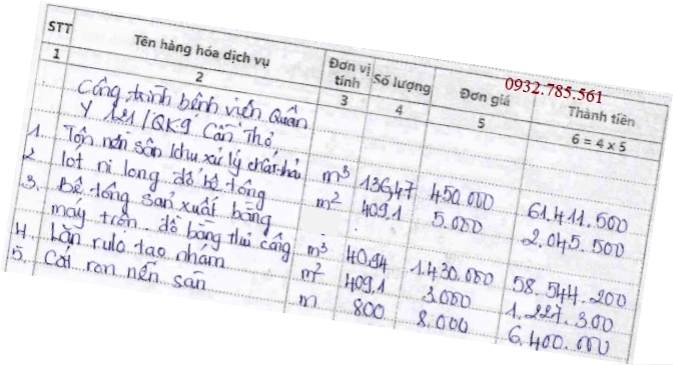 STT Tên hàng hóa dịch vụ Đơn vị tính Số lượng Đơn giá Thành tiền
0932.785.561
1 2 3 4 5 6 = 4 x 5
Công trình bệnh viện Quân
Y 121/QK9 Cần Thơ
1. Tôn nền sân khu xử lý chất thải m³ 136,47 450.000 61.411.500
2 lót ni long đổ bê tông m² 409,1 5.000 2.045.500
3. Bê tông sản xuất bằng
máy trộn. đổ bằng thủ công m³ 40,94 1.430.000 58.544.200
4. Lăn rulo tạo nhám m² 409,1 3.000 1.227.300
5. Cắt ron nền sân m 800 8.000 6.400.000